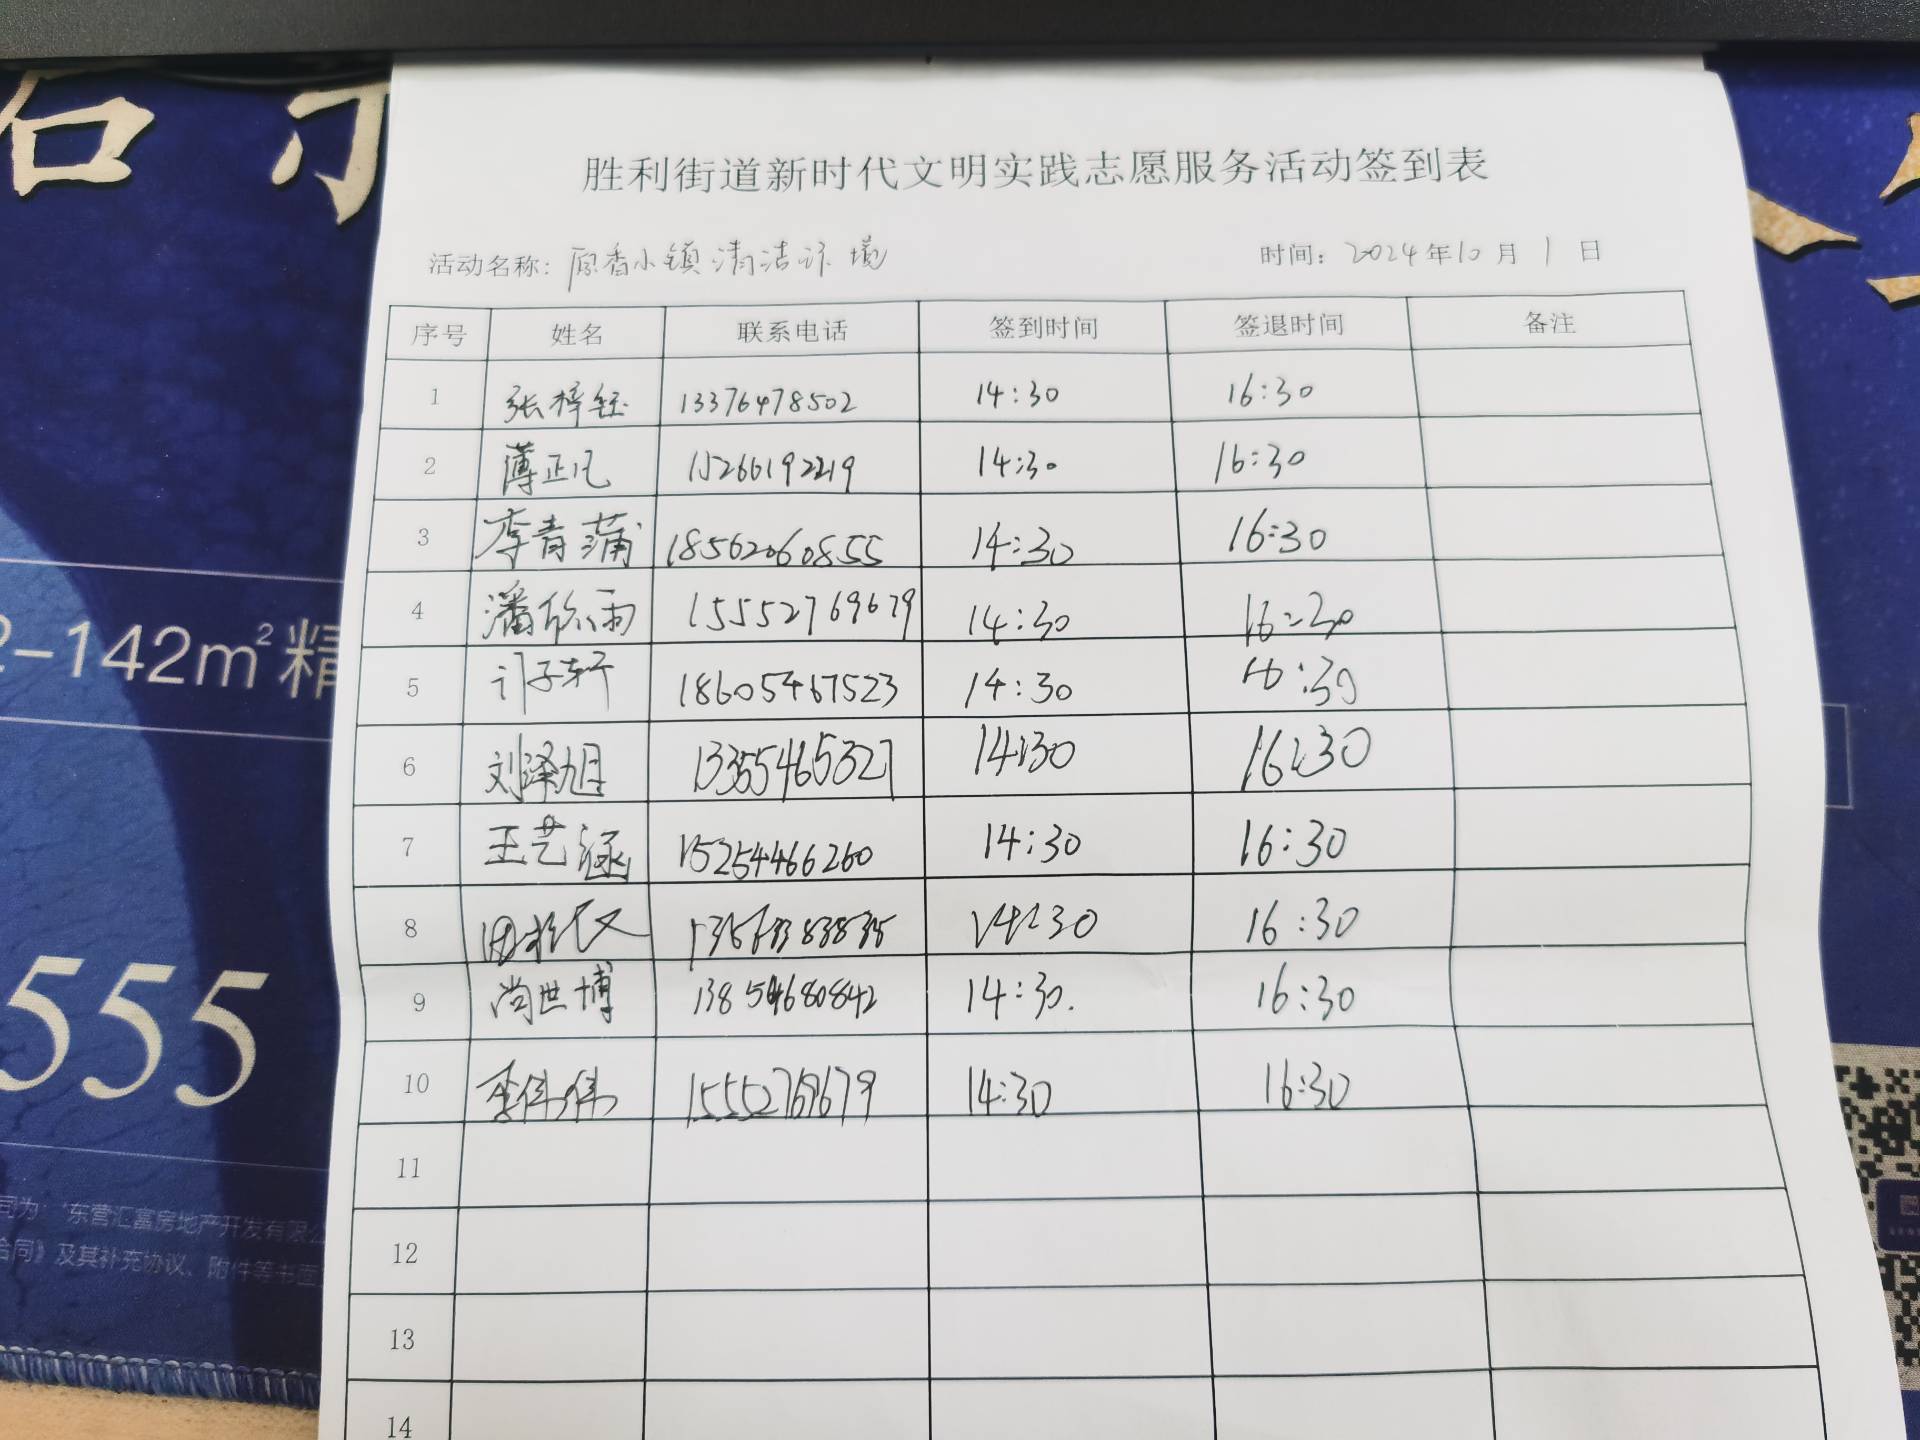 胜利街道新时代文明实践志愿服务活动签到表
活动名称：原香小镇清洁环境 时间：2024年10月1日
序号 姓名 联系电话 签到时间 签退时间 备注
1 张梓钰 13376478502 14:30 16:30
2 薄正凡 15266192219 14:30 16:30
3 李青蒲 18562060855 14:30 16:30
4 潘欣雨 15552769679 14:30 16:30
5 计子轩 18605467523 14:30 16:30
6 刘泽旭 13355465327 14:30 16:30
7 王艺涵 15254466260 14:30 16:30
8 14:30 16:30
9 尚世博 13854680842 14:30. 16:30
10 李伟伟 15552769679 14:30 16:30
11
12
13
14
2-142m²精
555
司为："东营汇富房地产开发有限公
合同》及其补充协议、附件等书面